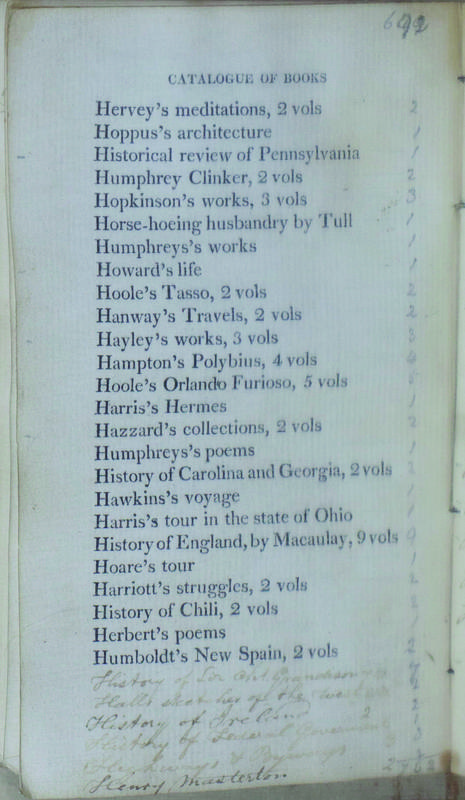 CATALOGUE OF BOOKS
Hervey's meditations, 2 vols 2
Hoppus's architecture 1
Historical review of Pennsylvania 1
Humphrey Clinker, 2 vols 2
Hopkinson's works, 3 vols 3
Horse-hoeing husbandry by Tull 1
Humphreys's works 1
Howard's life 1
Hoole's Tasso, 2 vols 2
Hanway's Travels, 2 vols 2
Hayley's works, 3 vols 3
Hampton's Polybius, 4 vols 4
Hoole's Orlando Furioso, 5 vols 5
Harris's Hermes 1
Hazzard's collections, 2 vols 2
Humphreys's poems 1
History of Carolina and Georgia, 2 vols 2
Hawkins's voyage 1
Harris's tour in the state of Ohio 1
History of England, by Macaulay, 9 vols 9
Hoare's tour 1
Harriott's struggles, 2 vols 2
History of Chili, 2 vols 2
Herbert's poems 1
Humboldt's New Spain, 2 vols 2
History of Sir Chs Grandison 7
Hall's sketches of the west
History of Ireland 2
History of Federal Government
Highways & Byways
Henry Masterton